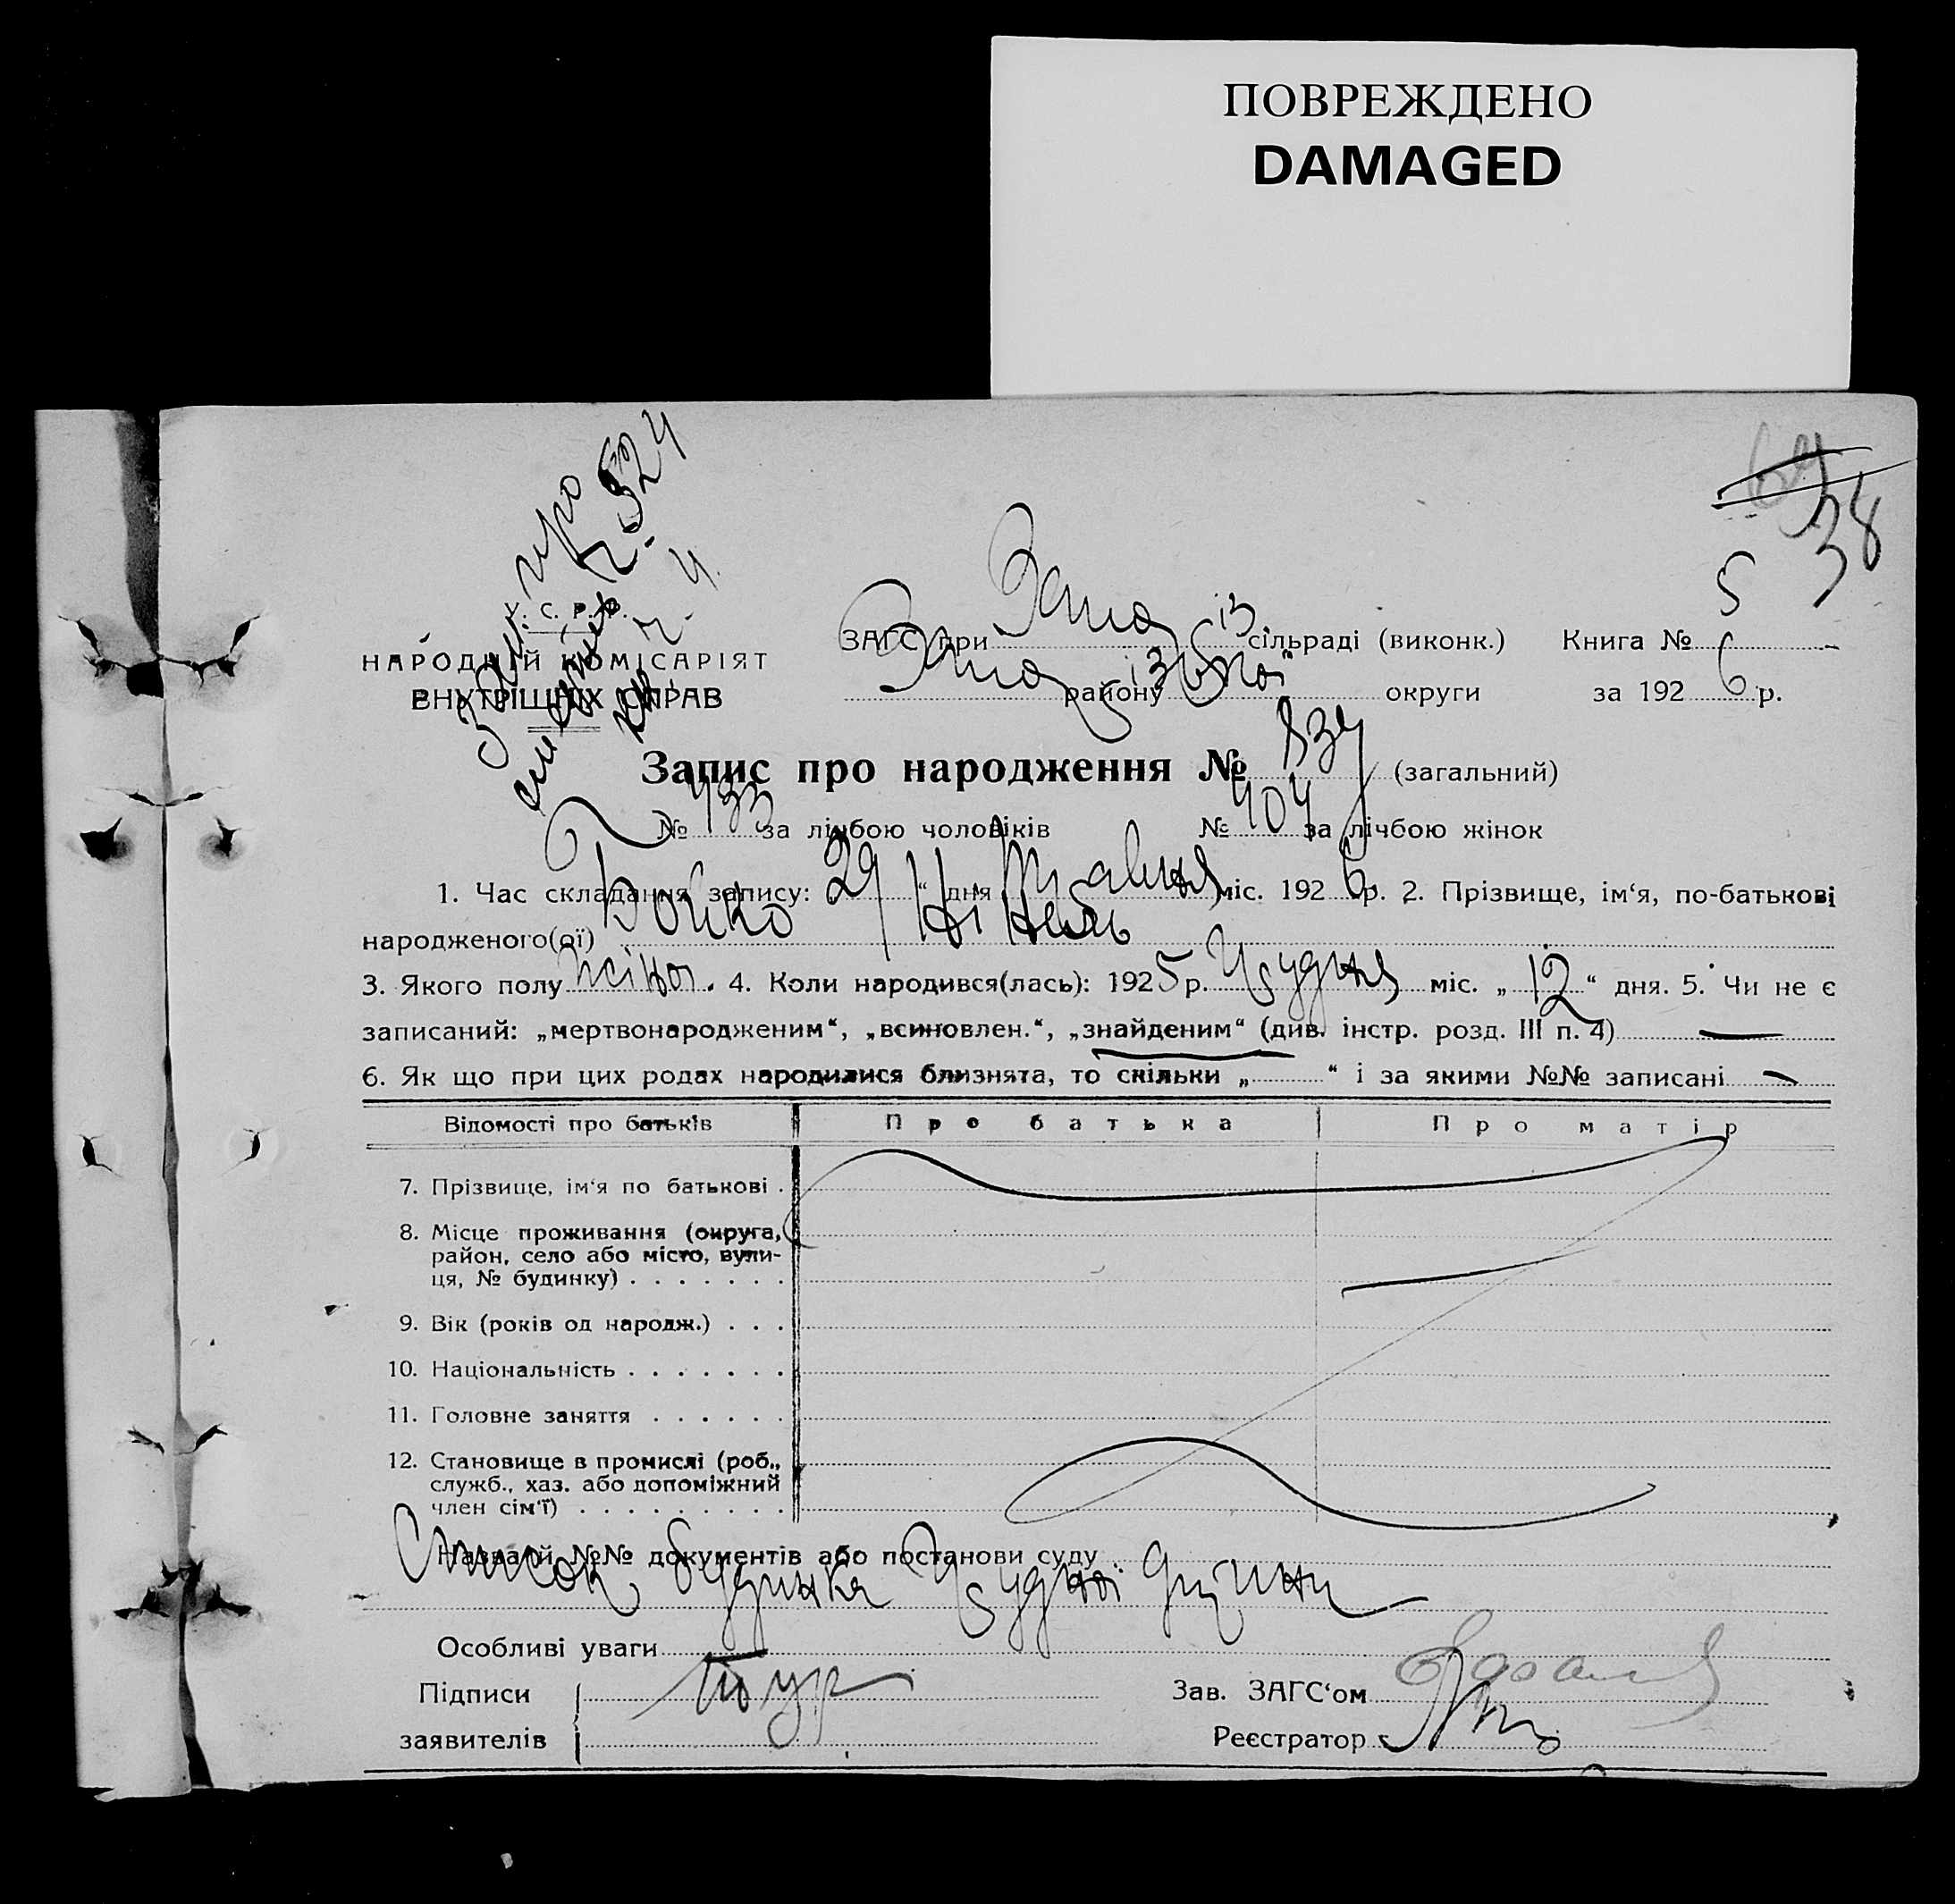 ПОВРЕЖДЕНО
DAMAGED
69
38
Запис про
смерть ч. 324
кн. ч. 4.
У. С. Р. Р.
НАРОДНІЙ КОМІСАРІЯТ
ВНУТРІШНІХ СПРАВ
ЗАГС при сільраді (виконк.) Книга № 5
району округи за 1926 р.
Запис про народження № 837 (загальний)
№ 433 за лічбою чоловіків № 404 за лічбою жінок
1. Час складання запису: 29 “ дня Травня міс. 1926 р. 2. Прізвище, ім‘я, по-батькові
народженого(ої) Бойко Нінель
3. Якого полу жіноч. 4. Коли народився(лась): 1925 р. Грудня міс. „ 12 “ дня. 5. Чи не є
записаний: „мертвонародженим“, „всиновлен.“, „знайденим“ (див. інстр. розд. III п. 4) —
6. Як що при цих родах народилися близнята, то скільки „ “ і за якими №№ записані —
Відомості про батьків Про батька Про матір
7. Прізвище, ім‘я по батькові .
8. Місце проживання (округа,
район, село або місто, вули-
ця, № будинку) . . . . . . .
9. Вік (років од народж.) . . .
10. Національність . . . . . . .
11. Головне заняття . . . . . .
12. Становище в промислі (роб.,
служб., хаз. або допоміжний
член сім‘ї) . . . . . . . . .
Назва й №№ документів або постанови суду
Список будинка Грудної дитини
Особливі уваги
Підписи Зав. ЗАГС‘ом
заявителів Реєстратор